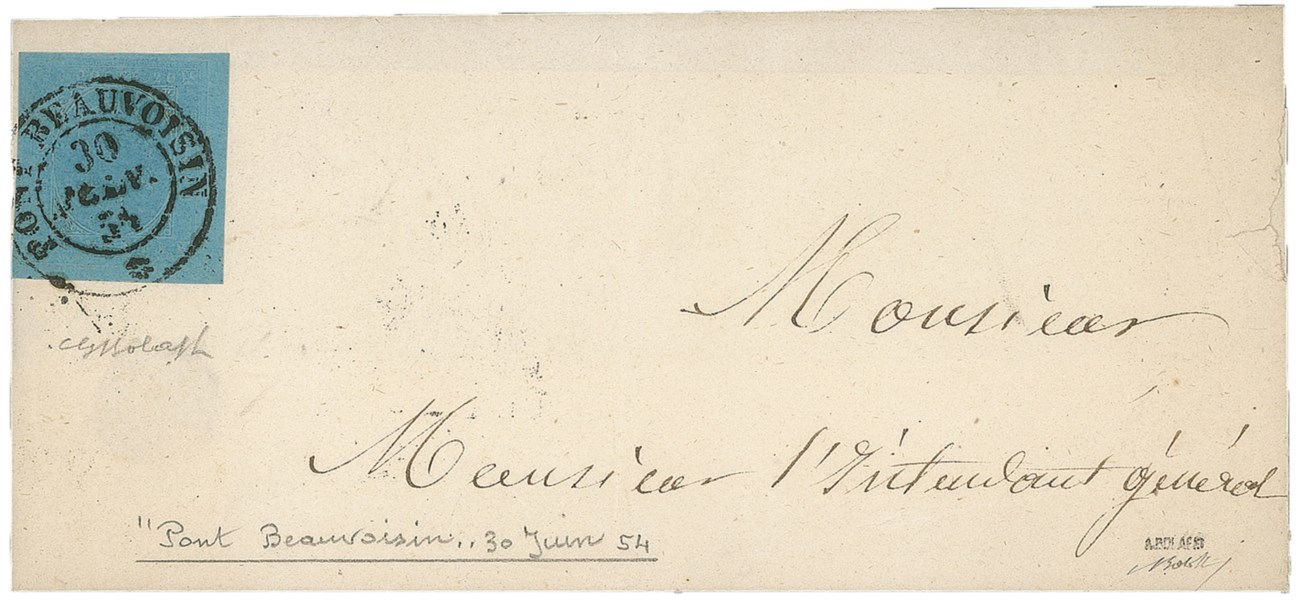 PONT BEAUVOISIN
30
54
Monsieur
Monsieur l'Intendant général
"Pont Beauvoisin.. 30 Juin 54
A. BOLAFFI